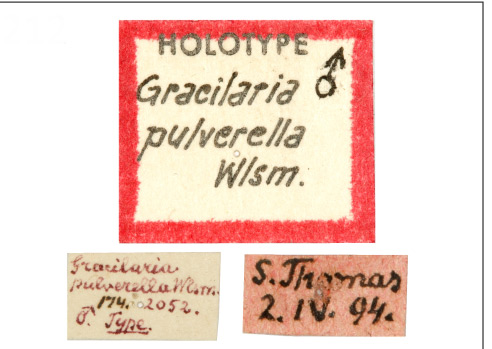 HOLOTYPE
Gracilaria ♂
pulverella
Wlsm.
Gracilaria
pulverella Wlsm.
174. 2052.
♂. Type.
S. Thomas
2. IV. 94.